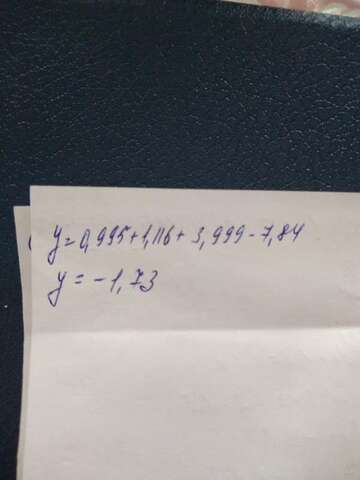 y=0,995+1,116+3,999-7,84
y=-1,73